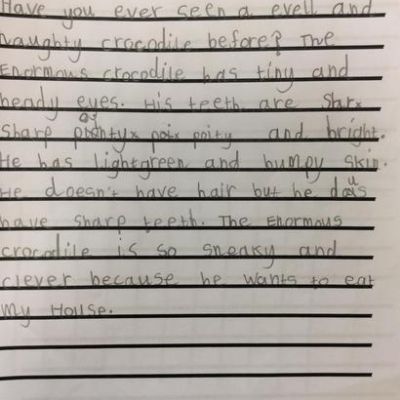 Have you ever seen a evell and
naughty crocodile before? The
Enormous crocodile has tiny and
beady eyes. His teeth are
sharp poity and bright.
He has lightgreen and bumpy skin.
He doesn't have hair but he daus
have sharp teeth. The Enormous
crocodile is so sneaky and
clever because he wants to eat
my House.